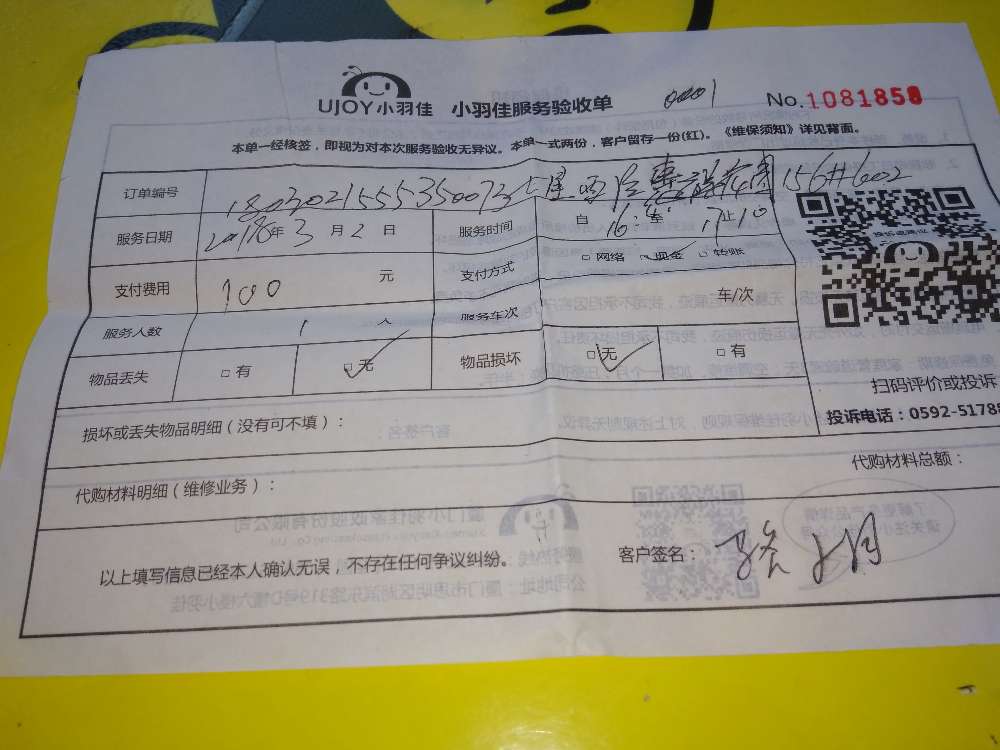 UJOY小羽佳 小羽佳服务验收单 0001 No.1081858
本单一经核签，即视为对本次服务验收无异议。本单一式两份，客户留存一份(红)。《维保须知》详见背面。
订单编号 156#602
服务日期 2018年3月2日 服务时间 自16: 至17止10
支付费用 100 元 支付方式 □网络 □现金 □转账
服务人数 1 人 服务车次 车/次
物品丢失 □有 □无 物品损坏 □无 □有
扫码评价或投诉
损坏或丢失物品明细（没有可不填）： 投诉电话：0592-5178
代购材料明细（维修业务）： 代购材料总额：
以上填写信息已经本人确认无误，不存在任何争议纠纷。 客户签名：